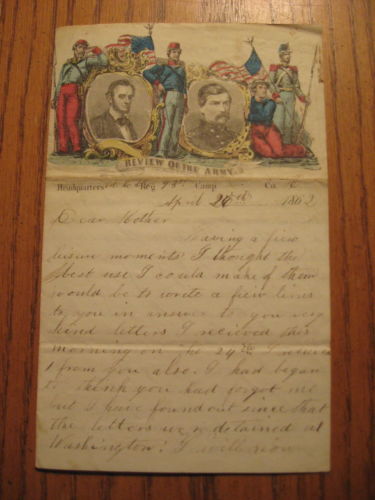 REVIEW OF THE ARMY.
Headquarters Reg 93 Camp Co.
April 26th 1862
Dear Mother
Having a few
leisure moments I thought the
best use I could make of them
would be to write a few lines
to you in answer to you very
kind letters I recieved this
morning on the 24th I recieved
1 from you also. I had began
to think you had forgot me
but I have found out since that
the letters were detained at
Washington. I will now